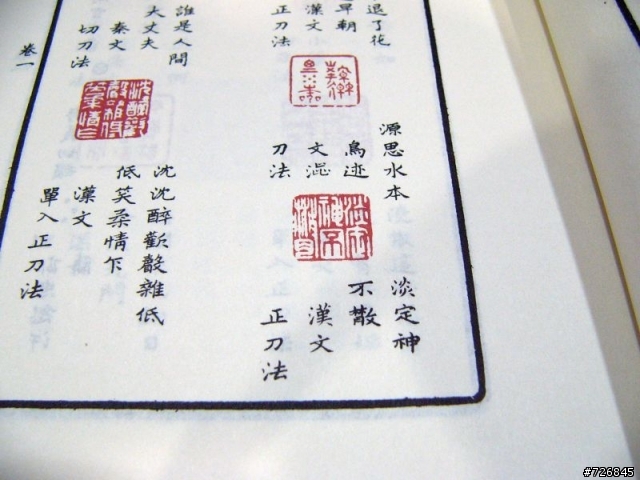 退了花
早朝
漢文
正刀法
源思水本
鳥迹
文
刀法
淡定神
不散
漢文
正刀法
誰是人間
大丈夫
秦文
切刀法
沈沈醉歡殽雜低
低笑柔情下
漢文
單入正刀法
卷一
#726845